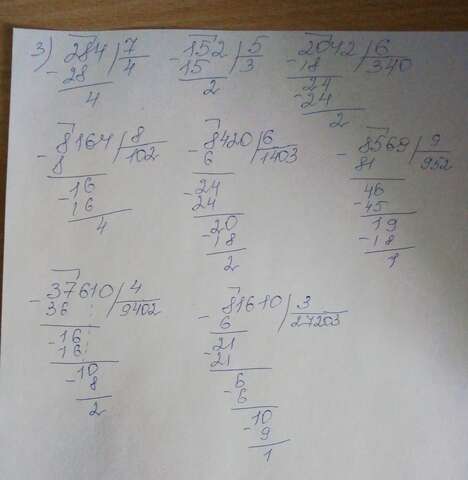 3) 284 | 7 152 | 5 2042 | 6
- 28 | 4 - 15 | 3 - 18 | 340
4 2 24
- 24
2
8164 | 8 8420 | 6 8569 | 9
- 8 | 102 - 6 | 1403 - 81 | 952
- 16 - 24 46
16 24 - 45
4 20 19
- 18 - 18
2 1
37610 | 4 81610 | 3
- 36 | 9402 - 6 | 27203
- 16 21
16 - 21
- 10 - 6
8 6
2 10
- 9
1